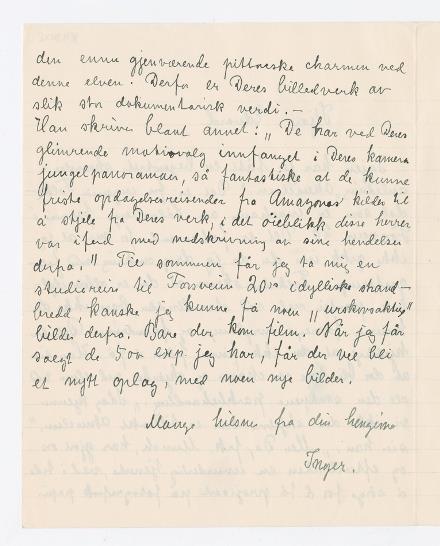 den ennu gjenværende pittoreske charmen ved
denne elven. Derfor er Deres billedverk av
slik stor dokumentarisk verdi. —
Han skriver blant annet: „ De har ved Deres
glimrende motivvalg innfanget i Deres kamera
jungelpanoramaer, så fantastiske at de kunne
friste opdagelsesreisender fra Amazonas kilder til
å stjele fra Deres verk, i det öieblikk disse herrer
var iferd med nedskrivning av sine hendelser
derfra. " Til sommeren får jeg ta mig en
studiereise til 20 idylliske strand-
bredd, kanske jeg kunne få noen „ urskovsaktige "
bilder derfra. Bare der kom film. Når jeg får
solgt de 500 exp. jeg har, får der vel bli
et nytt oplag, med noen nye bilder.
Mange hilsner fra din hengivne
Inger.